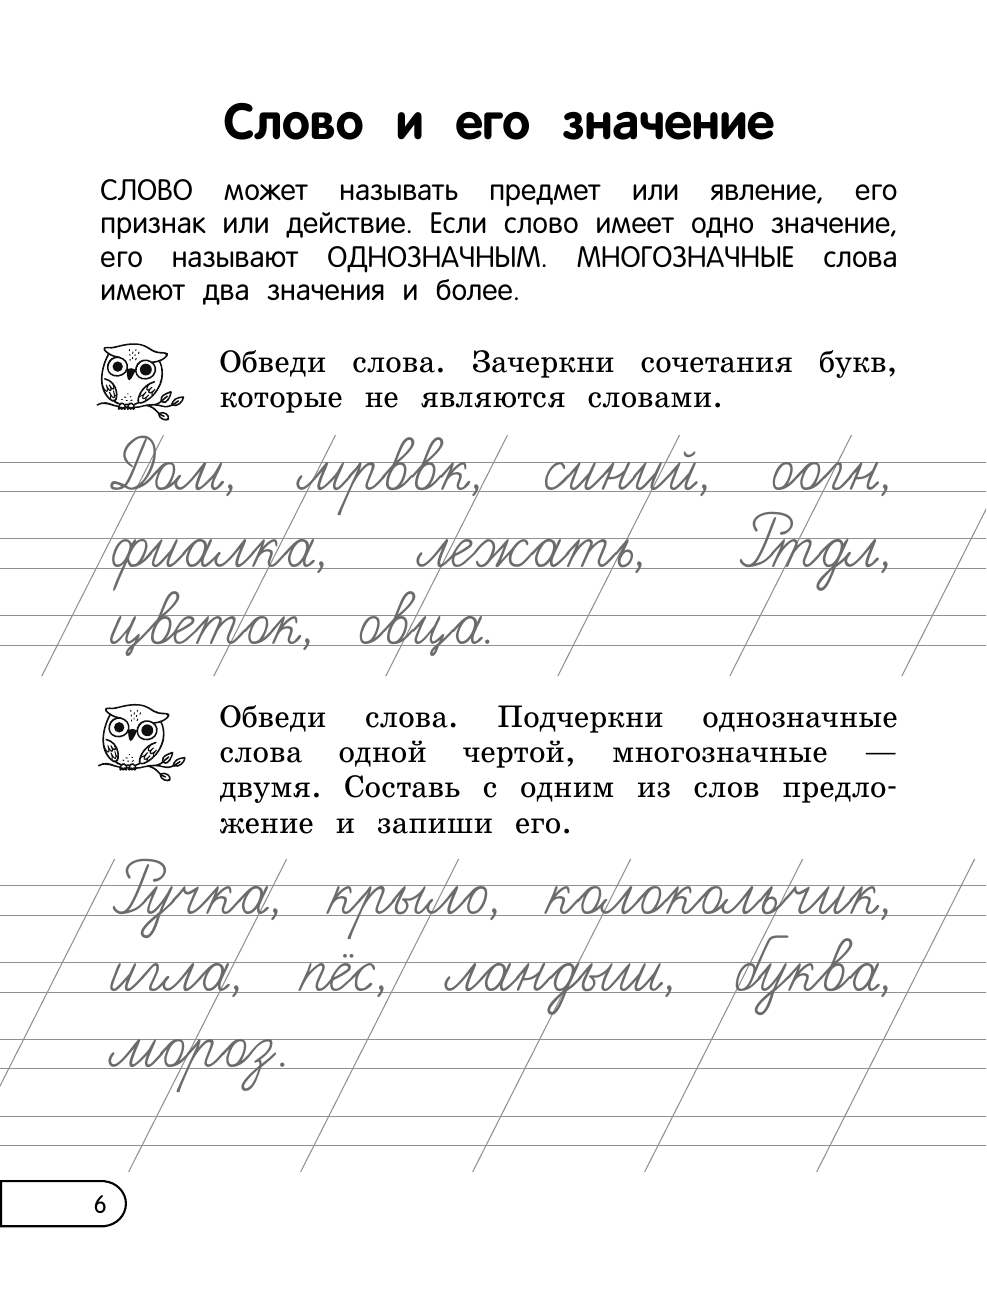 Слово и его значение
СЛОВО может называть предмет или явление, его
признак или действие. Если слово имеет одно значение,
его называют ОДНОЗНАЧНЫМ. МНОГОЗНАЧНЫЕ слова
имеют два значения и более.
Обведи слова. Зачеркни сочетания букв,
которые не являются словами.
Дом, мрввк, синий, оогн,
фиалка, лежать, Ртдл,
цветок, овца.
Обведи слова. Подчеркни однозначные
слова одной чертой, многозначные —
двумя. Составь с одним из слов предло-
жение и запиши его.
Ручка, крыло, колокольчик,
игла, пёс, ландыш, буква,
мороз.
6